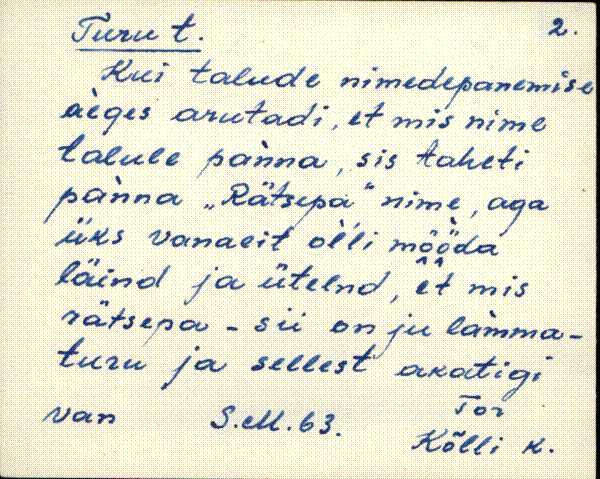 Turu t. 2.
Kui talude nimedepanemise
àeges arutadi, et mis nime
talule pànna, sis taheti
pànna „Rätsepa" nime, aga
üks vanaeit òlli mööda
läind ja ütelnd, et mis
rätsepa - sii on ju làmma-
turu ja sellest akatigi
van S.M. 63. Tor
Kõlli k.